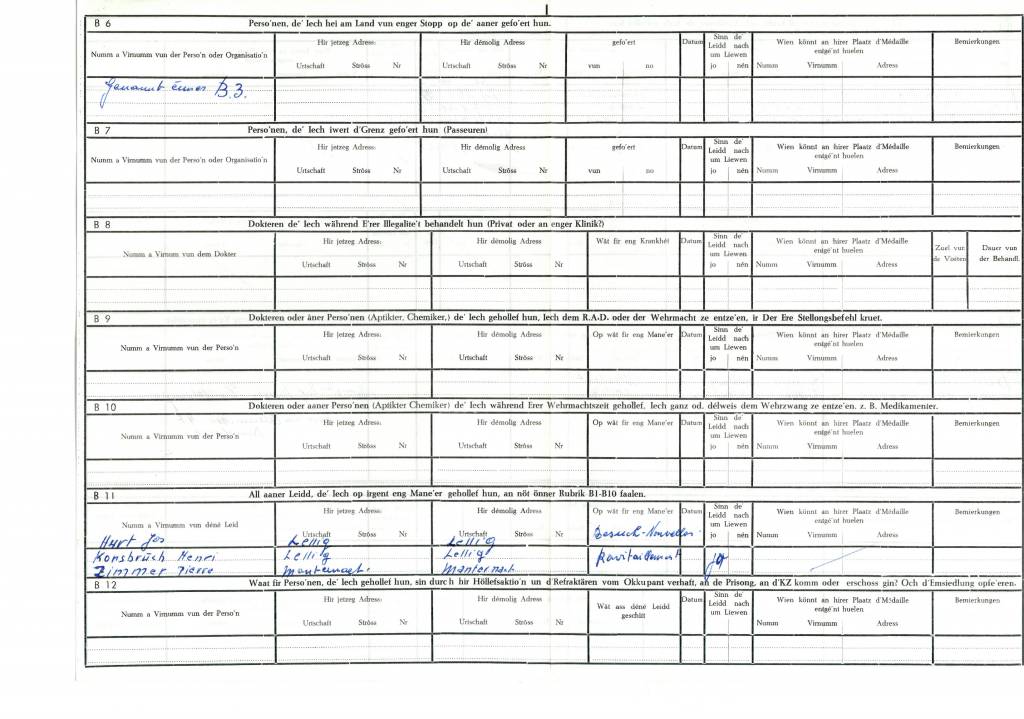 B 6 Perso'nen, de' Iech hei am Land vun enger Stopp op de' aaner gefo'ert hun.
Numm a Virnumm vun der Perso'n oder Organisatio'n Hir jetzeg Adress: Hir démolig Adress gefo'ert Datum Sinn de' Leidd nach um Liewen Wien könnt an hirer Plaatz d'Médaille entgé'nt huelen Bemierkungen
Urtschaft Ströss Nr Urtschaft Ströss Nr vun no jo nén Numm Virnumm Adress
Genannt ënner B.3.
B 7 Perso'nen, de' Iech iwert d'Grenz gefo'ert hun (Passeuren)
Numm a Virnumm vun der Perso'n oder Organisatio'n Hir jetzeg Adress: Hir démolig Adress gefo'ert Datum Sinn de' Leidd nach um Liewen Wien könnt an hirer Plaatz d'Médaille entgé'nt huelen Bemierkungen
Urtschaft Ströss Nr Urtschaft Ströss Nr vun no jo nén Numm Virnumm Adress
B 8 Dokteren de' Iech während E'rer Illegalite't behandelt hun (Privat oder an enger Klinik?)
Numm a Virnum vun dem Dokter Hir jetzeg Adress: Hir démolig Adress Wât fir eng Krankhét Datum Sinn de' Leidd nach um Liewen Wien könnt an hirer Plaatz d'Médaille entgé'nt huelen Zuel vun de Visiten Dauer vun der Behandl.
Urtschaft Ströss Nr Urtschaft Ströss Nr jo nén Numm Virnumm Adress
B 9 Dokteren oder âner Perso'nen (Aptikter, Chemiker,) de' Iech gehollef hun, Iech dem R.A.D. oder der Wehrmacht ze entze'en, ir Der Ere Stellongsbefehl kruet.
Numm a Virnumm vun der Perso'n Hir jetzeg Adress: Hir démolig Adress Op wât fir eng Mane'er Datum Sinn de' Leidd nach um Liewen Wien könnt an hirer Plaatz d'Médaille entgé'nt huelen Bemierkungen
Urtschaft Ströss Nr Urtschaft Ströss Nr jo nén Numm Virnumm Adress
B 10 Dokteren oder aaner Perso'nen (Aptikter Chemiker) de' Iech während Erer Wehrmachtszeit gehollef, Iech ganz od. délweis dem Wehrzwang ze entze'en. z. B. Medikamenter.
Numm a Virnumm vun der Perso'n Hir jetzeg Adress: Hir démolig Adress Op wât fir eng Mane'er Datum Sinn de' Leidd nach um Liewen Wien könnt an hirer Plaatz d'Médaille entgé'nt huelen Bemierkungen
Urtschaft Ströss Nr Urtschaft Ströss Nr jo nén Numm Virnumm Adress
B 11 All aaner Leidd, de' Iech op irgent eng Mane'er gehollef hun, an nöt önner Rubrik B1-B10 faalen.
Numm a Virnumm vun déné Leid Hir jetzeg Adress: Hir démolig Adress Op wât fir eng Mane'er Datum Sinn de' Leidd nach um Liewen Wien könnt an hirer Plaatz d'Médaille entgé'nt huelen Bemierkungen
Urtschaft Ströss Nr Urtschaft Ströss Nr jo nén Numm Virnumm Adress
Hurt Jos Lellig Lellig Besuch-Nouvelles
Konsbrück Henri Lellig Lellig Ravitaillement jo
Zimmer Pierre Manternach Manternach
B 12 Waat fir Perso'nen, de' Iech gehollef hun, sin durch hir Höllefsaktio'n un d'Refraktären vom Okkupant verhaft, an de Prisong, an d'KZ komm oder erschoss gin? Och d'Emsiedlung opfe'eren.
Numm a Virnumm vun der Perso'n Hir jetzeg Adress: Hir démolig Adress Wât ass déné Leidd geschitt Datum Sinn de' Leidd nach um Liewen Wien könnt an hirer Plaatz d'Médaille entgé'nt huelen Bemierkungen
Urtschaft Ströss Nr Urtschaft Ströss Nr jo nén Numm Virnumm Adress